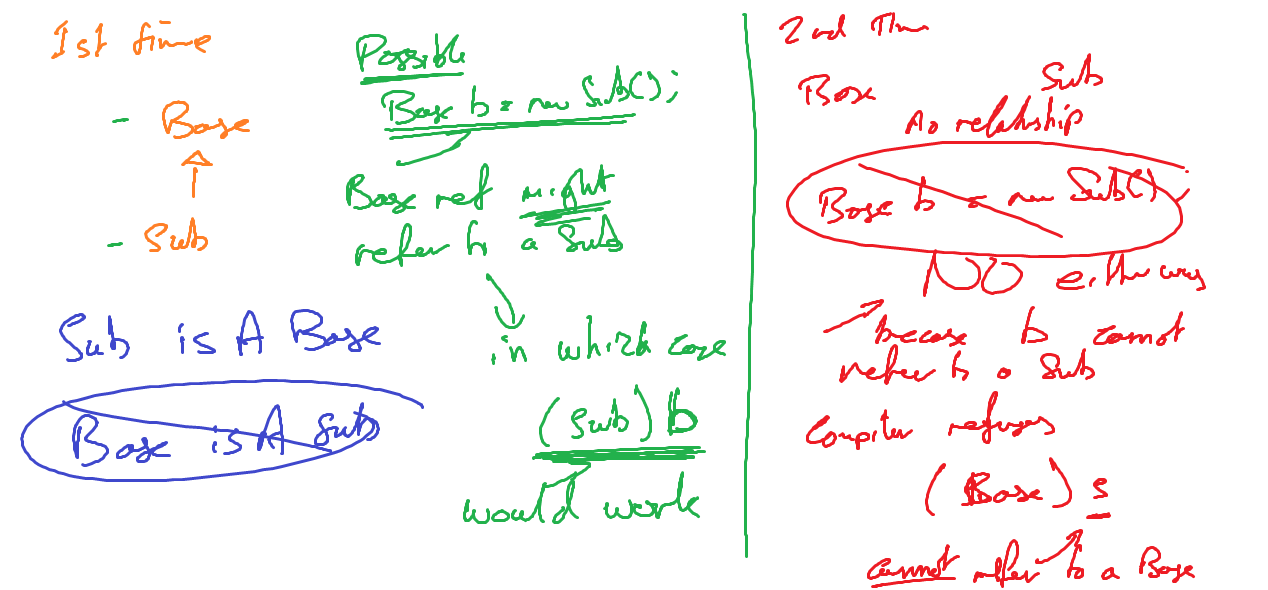 1st time
- Base
- Sub
Sub is A Base
Base is A Sub
Possible
Base b = new Sub();
Base ref might
refer to a Sub
in which case
(Sub) b
would work
2nd Time
Base Sub
No relationship
Base b = new Sub()
NO either way
because b cannot
refer to a Sub
Compiler refuses
(Base) s
cannot refer to a Base